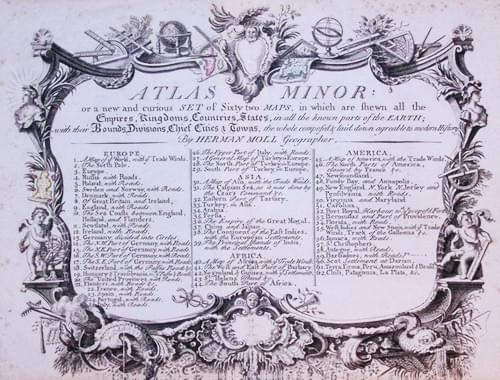 ATLAS MINOR:
or a new and curious SET of Sixty two MAPS, in which are shewn all the
Empires, Kingdoms, Countries, States, in all the known parts of the EARTH;
with their Bounds, Divisions, Chief Cities & Towns, the whole compos'd & laid down agreable to modern History.
By HERMAN MOLL Geographer.
EUROPE.
1. A Map of y.e World, with y.e Trade Winds.
2. The North Pole.
3. Europe.
4. Russia with Roads.
5. Poland, with Roads.
6. Sweden and Norway, with Roads.
7. Denmark, with Roads.
8. Of Great Britain and Ireland,
9. England, with Roads.
10. The Sea Coasts between England,
Holland, and Flanders.
11. Scotland, with Roads.
12. Ireland, with Roads.
13. Germany divided into Circles
14. The N.W. Part of Germany, with Roads.
15. The N.E. Part of Germany, with Roads.
16. The S.W. Part of Germany, with Roads.
17. The S.E. Part of Germany, with Roads.
18. Switzerland, with the Roads
19. Hungary & Transilvania, with Roads
20. United Provinces, with Roads.
21. Flanders, with Roads
22. France, with Roads.
23. Spain, with Roads.
24. Portugal, with Roads.
25. Italy, with Roads.
26. The Upper Part of Italy, with Roads.
27. A General Map of Turkey in Europe.
28. The North Part of Turkey in Europe.
29. South Part of Turky, in Europe.
ASIA
30. A Map of Asia with the Trade Winds.
31. The Caspian Sea, as it was done by
Czar's Command &c.
32. Eastern Part of Tartary.
33. Turky, in Asia.
34. Arabia.
35. Persia.
36. The Empire of the Great Mogul.
37. China and Japan.
38. The Continent of the East Indies,
with the European Settlements.
39. The Principal Islands of India,
with the Settlements.
AFRICA.
40. A Map of Africa with y.e Trade Winds.
41. The West and East Part of Barbary
42. Negroland & Guinea, with y.e Settlements.
43. S.t Helens Island &c.
44. The South Part of Africa.
AMERICA.
45. A Map of America, with the Trade Winds.
46. The North Parts of America
claimed by France &c.
47. Newfoundland.
48. Hudsons Bay, and Annapolis.
49. New England, N. York N. Jersey and
Pensilvania, with Roads.
50. Virginia and Maryland
51. Carolina.
52. Port Royal, Harbour
53. Bermudas and Part of Providence.
54. Florida, with Roads.
55. West Indies and New Spain, with y.e Trade
Winds, Track of the Galleons &c.
56. Jamaica, with Roads.
57. S.t Christophers
58. Antego, with Roads.
59. Barbadoes, with Roads &c.
60. Scots Settlement at Darien.
61. Terra Firma, Peru, Amazoneland & Brasil
62. Chili, Patagonia, La Plata, &c.